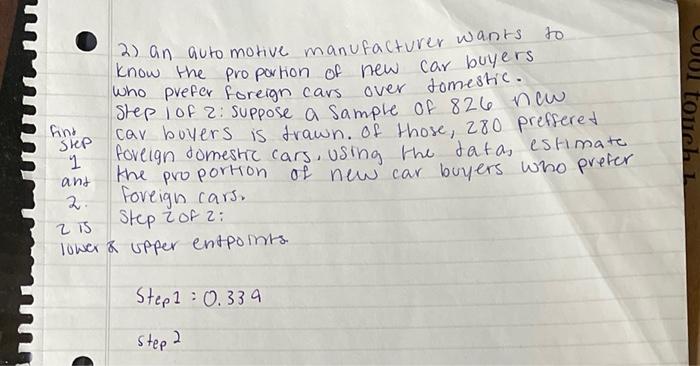 2) an automotive manufacturer wants to
know the proportion of new car buyers
who prefer foreign cars over domestic.
Step 1 of 2: suppose a sample of 826 new
car buyers is drawn. of those, 280 preffered
foreign domestic cars. using the data, estimate
the proportion of new car buyers who prefer
foreign cars.
Step 2 of 2:
find
step
1
and
2.
2 is
lower & upper endpoints
Step1 : 0.339
step 2